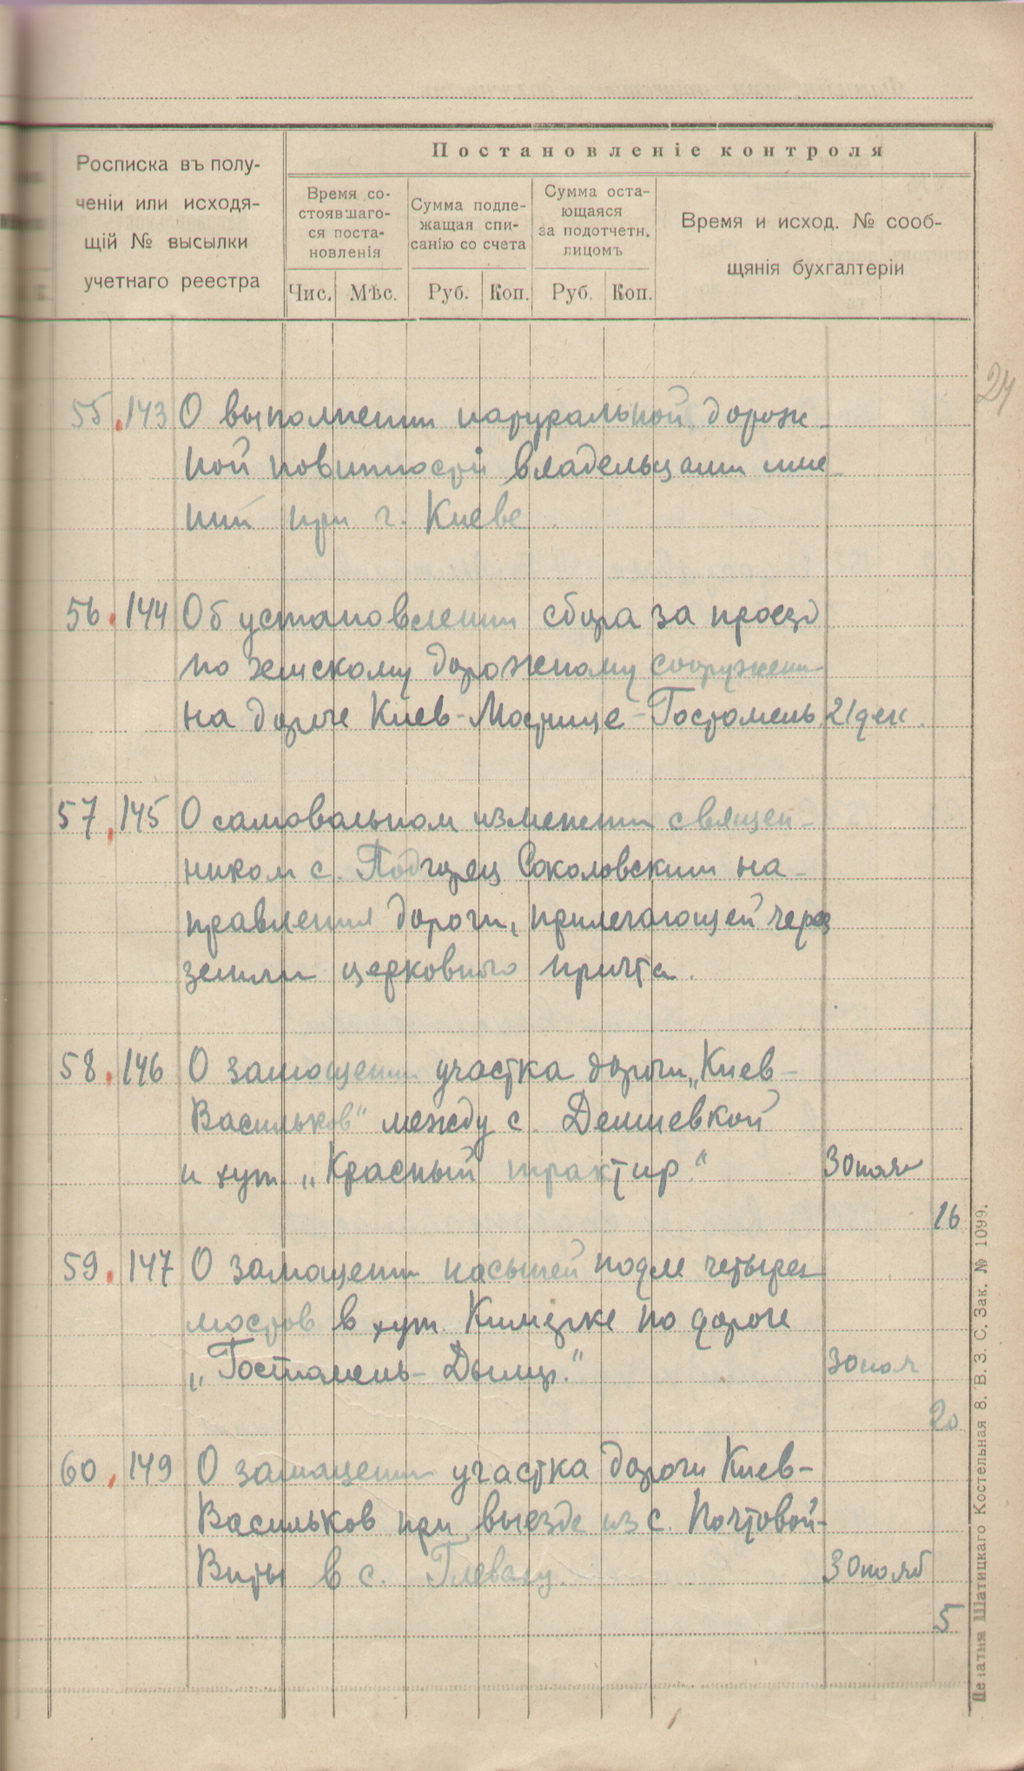 Постановленіе контроля
Росписка въ полу-
ченіи или исходя-
щій № высылки
учетнаго реестра
Время со-
стоявшаго-
ся поста-
новленія
Сумма подле-
жащая спи-
санію со счета
Сумма оста-
ющаяся
за подотчетн.
лицомъ
Время и исход. № сооб-
щянія бухгалтеріи
Чис. Мѣс. Руб. Коп. Руб. Коп.
24
55. 143 О выполнении натуральной дорож-
ной повинности владельцами име-
ний при г. Киеве
56. 144 Об установлении сбора за проезд
по земскому дорожному сооружению
на дороге Киев-Мостище-Гостомель 21 дек.
57. 145 О самовольном изменении священ-
ником с. Подгорец Соколовским на-
правления дороги, прилегающей через
земли церковного причта.
58. 146 О замощении участка дороги „Киев-
Васильков" между с. Демиевкой
и хут. „Красный трактир." 30 ноя
16
59. 147 О замощении насыпей подле четырех
мостов в хут. Кимерке по дороге
„Гостомель-Дымер." 30 ноя
20
60. 149 О замощении участка дороги Киев-
Васильков при выезде из с. Почтовой-
Виты в с. Глеваху. 30 нояб
5
Печатня Шатицкаго Костельная 8. В. З. С. Зак. № 1099.